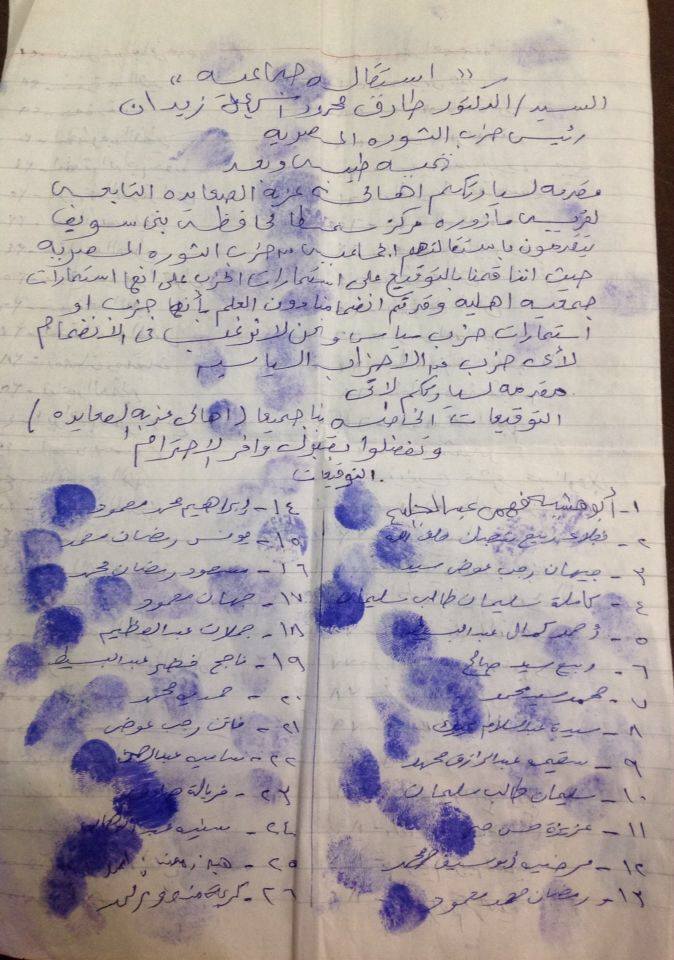 « استقاله جماعيه »
السيد / الدكتور طارق محمود اسماعيل زيدان
رئيس حزب الثوره المصريه
تحيه طيبه وبعد
مقدمه لسيادتكم اهالى عزبة الصعايده التابعه
لقريه مازوره مركز سمسطا محافظه بنى سويف
يتقدمون باستقالتهم الجماعيه من حزب الثوره المصريه
حيث اننا قمنا بالتوقيع على استمارات الحزب على انها استمارات
جمعيه اهليه وقد تم انضمامنا دون العلم بأنها حزب او
استمارات حزب سياسى ونحن لا نرغب فى الانضمام
لأى حزب من الاحزاب السياسيه
مقدمه لسيادتكم لاتى
التوقيعات الخاصه بنا جميعا ( اهالى عزبه الصعايده )
وتفضلوا بقبول وافر الاحترام
التوقيعات
١- أبو هشيمه فهمى عبد الحليم
٢- ربيع خلف الله
٣- جيهان رجب عوض سيد
٤- كاملة سليمان طالب سليمان
٥- أحمد كمال عبد البسيط
٦- ربيع سيد صالح
٧- محمد سيد محمد
٨- سيدة عبد السلام مبروك
٩- عبد الرازق محمد
١٠- سليمان طالب سليمان
١١- عزيزة حسن
١٢- أبو سيف محمد
١٣- رمضان محمد محمود
١٤- إبراهيم محمد محمود
١٥- يونس رمضان محمد
١٦- مسعود رمضان محمد
١٧- جهان محمود
١٨- جملات عبد العظيم
١٩- ناجح خضر عبد البسيط
٢٠- حمديه محمد
٢١- فاتن رجب عوض
٢٢- ساميه
٢٣- فريالة
٢٤-
٢٥-
٢٦- كريمة